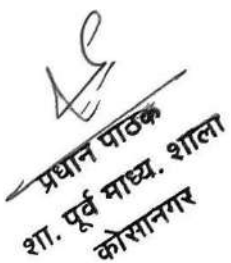 प्रधान पाठक
शा. पूर्व माध्य. शाला
कोसानगर